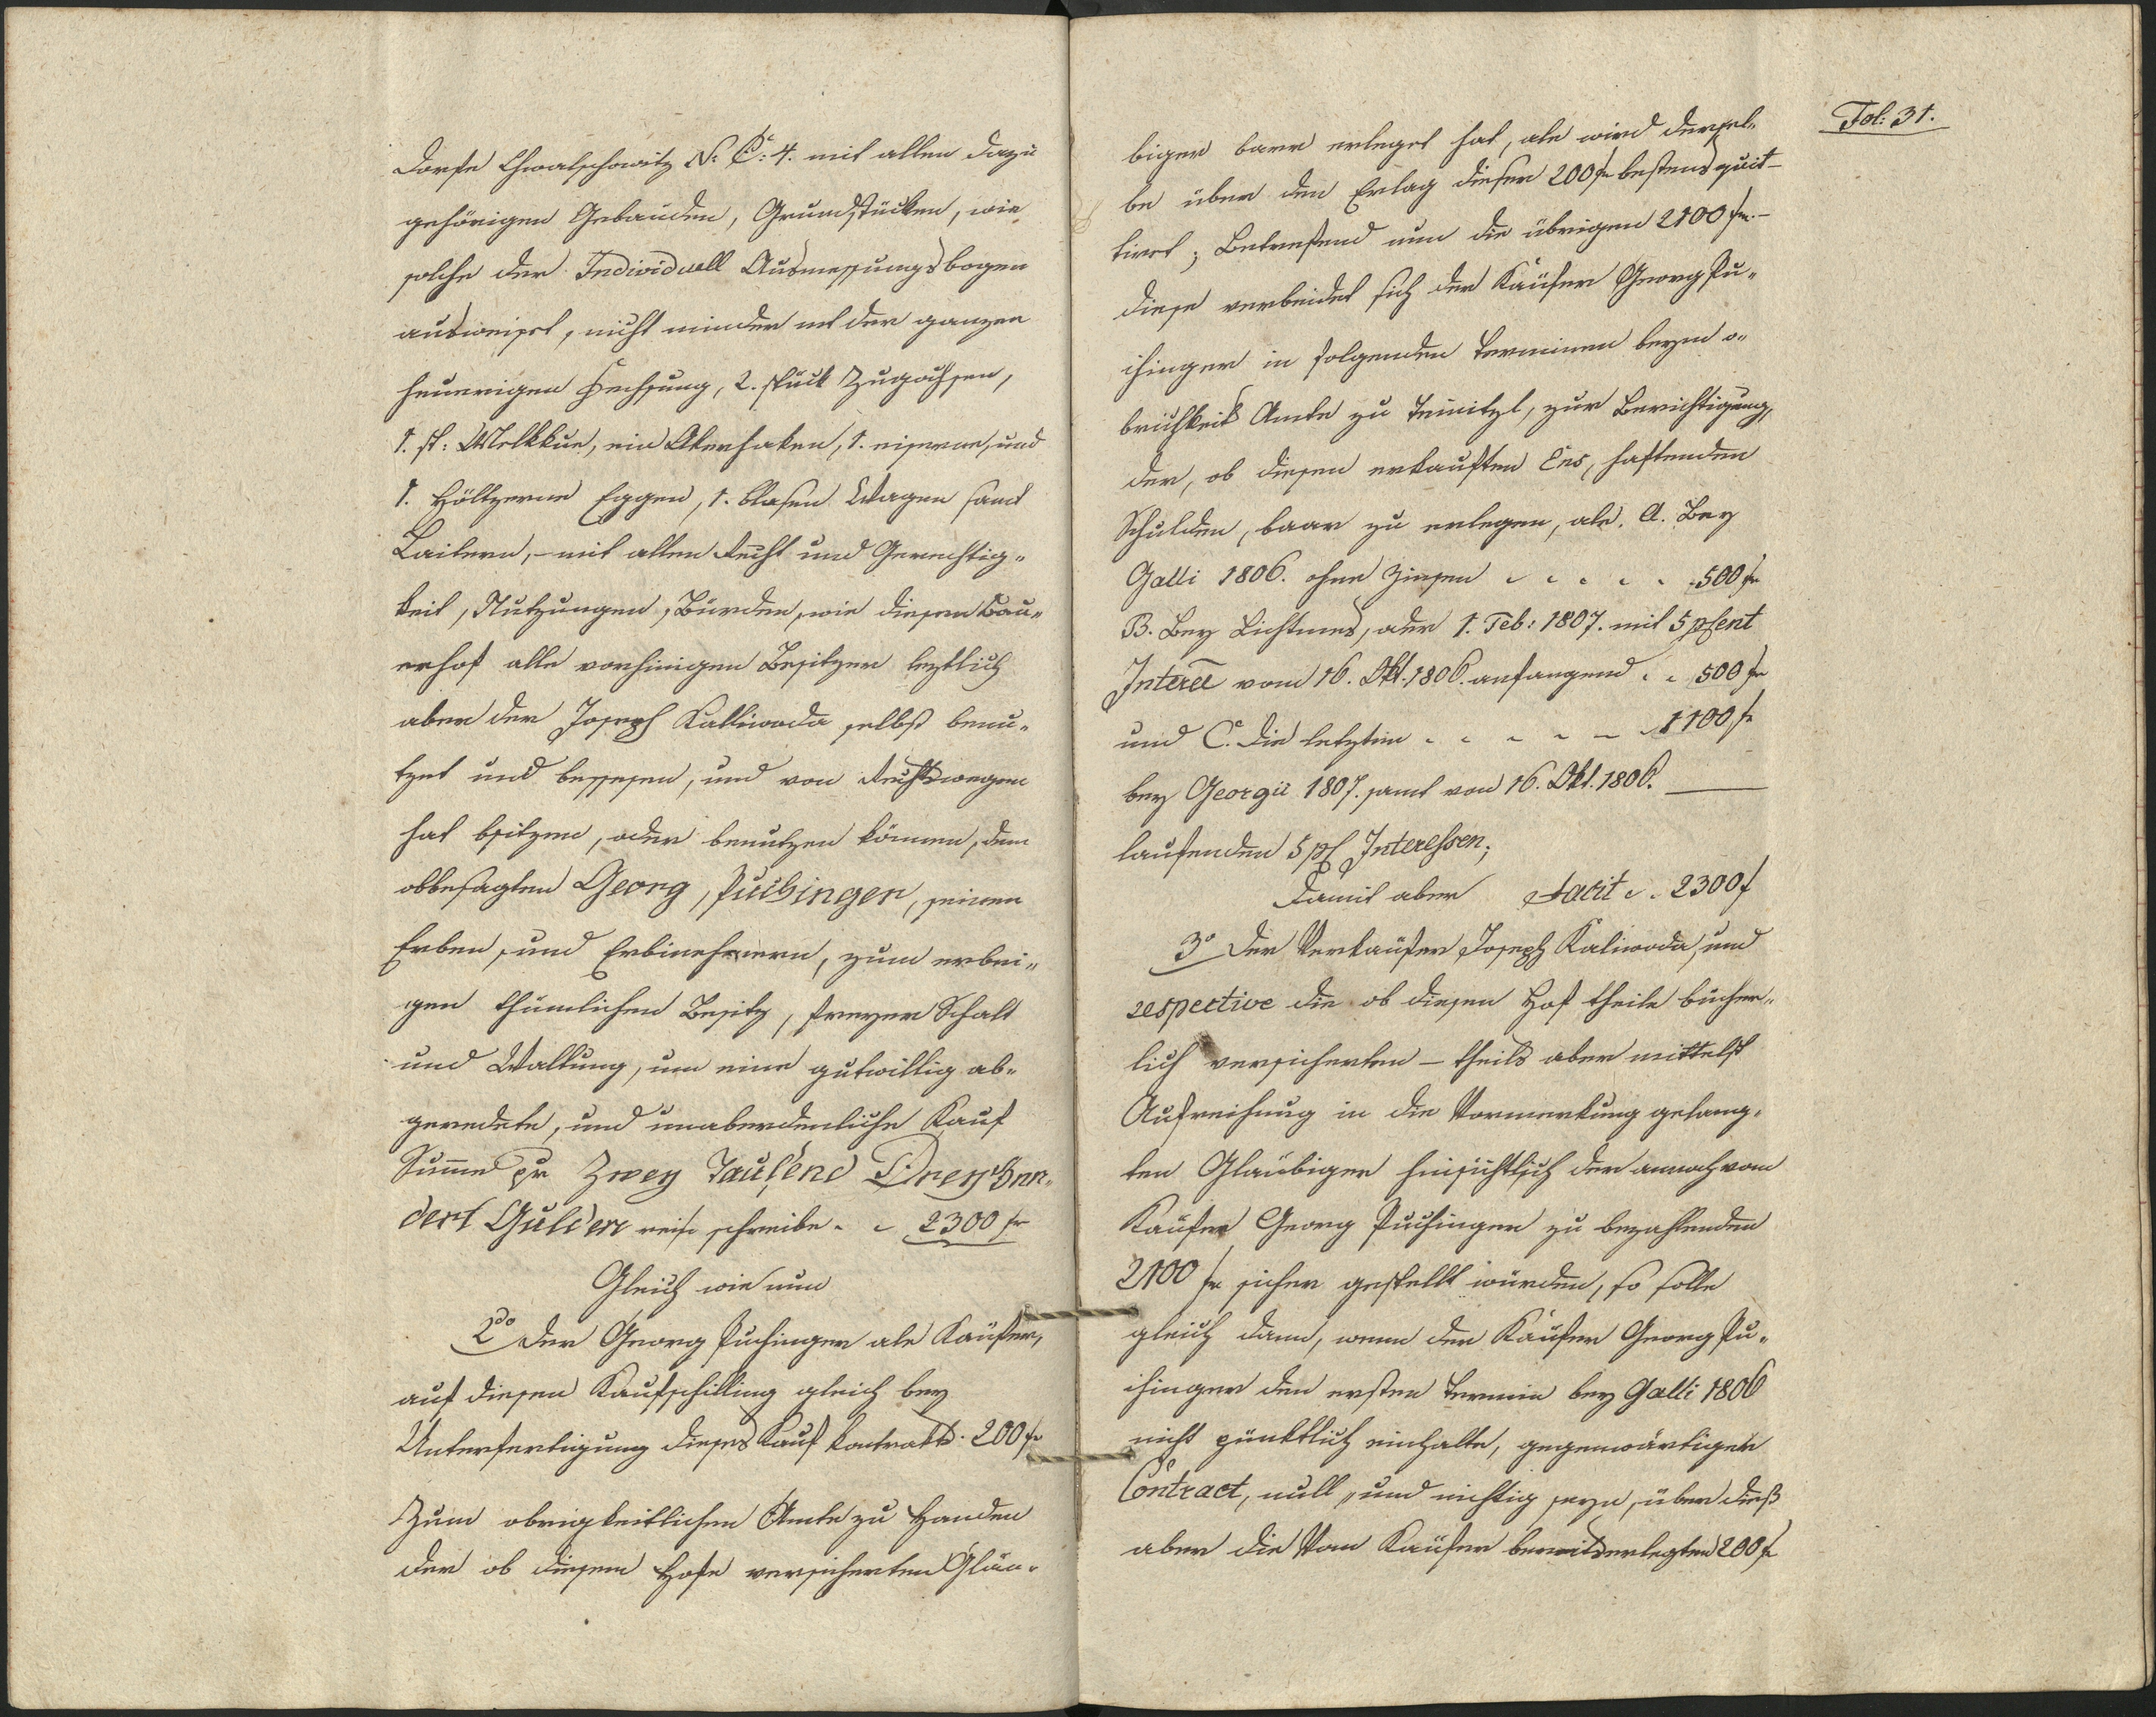 Dorfe Chwalschowitz N: C: 4. mit allen dazu
gehörigen Gebäuden, Grundstücken, wie
solche der Individuell Ausmessungsbogen
ausweiset, nicht minder mit der ganzen
heuerigen Fechsung, 2. stück Zugochsen,
1. st: Melkkue, ein Akerhaken, 1. eiserne, und
1. höltzerne Eggen, 1. blosen Wagen samt
Laitern, – mit allen Recht und Gerechtig-
keit, Nutzungen, Bürden, wie diesen Bau-
erhof alle vorhinigen Besitzer leztlich
aber der Joseph Kalliwoda selbst benu-
tzet und besessen, und von Rechtswegen
hat bsitzen, oder benutzen können, dem
obbesagten Georg, Puchinger, seinen
Erben, und Erbnehmern, zum erbei-
gen thümlichen Besitz, freyer Schalt
und Waltung, um eine gutwillig ab-
geredete, und unabänderliche Kauf
Summe pr Zwey Tausend Drey hun-
dert Gulden schreibe 2300 f
Gleich wie nun
2do Der Georg Puchinger als Käufer,
auf diesen Kaufschilling gleich bey
Unterfertigung dieses Kauf Kontrakts. 200 f
Zum obrigkeitlichen Amte zu Handen
der ob diesem Hofe versicherten Gläu-
Fol: 31.
biger baar erleget hat, als wird dersel-
be über den Erlag dieser 200 f bestens quit-
tiret; Betreffend nun die übrigen 2100 f –
diese verbindet sich der Käufer Georg Pu-
chinger in folgenden Terminen beym o-
brichkeits Amte zu Teinitzl, zur Berichtigung,
der, ob diesen erkauften Ens, haftenden
Schulden, baar zu erlegen, als. A. Bey
Galli 1806. ohne Zinsen 500 f
B. Bey Lichtmes, oder 1. Feb: 1807. mit 5 pCent
Interee vom 16. Okt. 1806. anfangend 500 f
und C. die letzten 1100 f
bey Georgii 1807. samt von 16. Okt. 1806.
laufenden 5 pC Interessen;
Damit aber Facit 2300 f
3o Der Verkäufer Joseph Kaliwoda, und
respective die ob diesen Hof theils bücher-
lich versicherten – theils aber mittelst
Aufreihung in die Vormerkung gelang-
ten Gläubiger hinsichtlich der annoch vom
Käufer Georg Puchinger zu bezahlenden
2100 f sicher gestellt würden, so solle
gleich dann, wenn der Käufer Georg Pu-
chinger den ersten Termin bey Galli 1806
nicht pünktlich einhalte, gegenwärtiger
Contract, null, und nichtig seyn, über dieß
aber die vom Käufer bereits erlegten 200 f